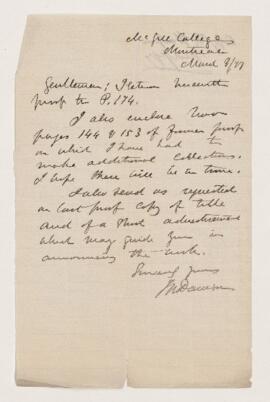 McGill College
Montreal
March 9/77
Gentlemen; I return herewith
proof to P. 174.
I also enclose two
pages 144 & 153 of former proof
on which I have had to
make additional corrections.
I hope these will be in time.
I also send as requested
on last proof copy of title
and of a short advertisement
which may guide you in
announcing the work.
Sincerely yours
JWDawson